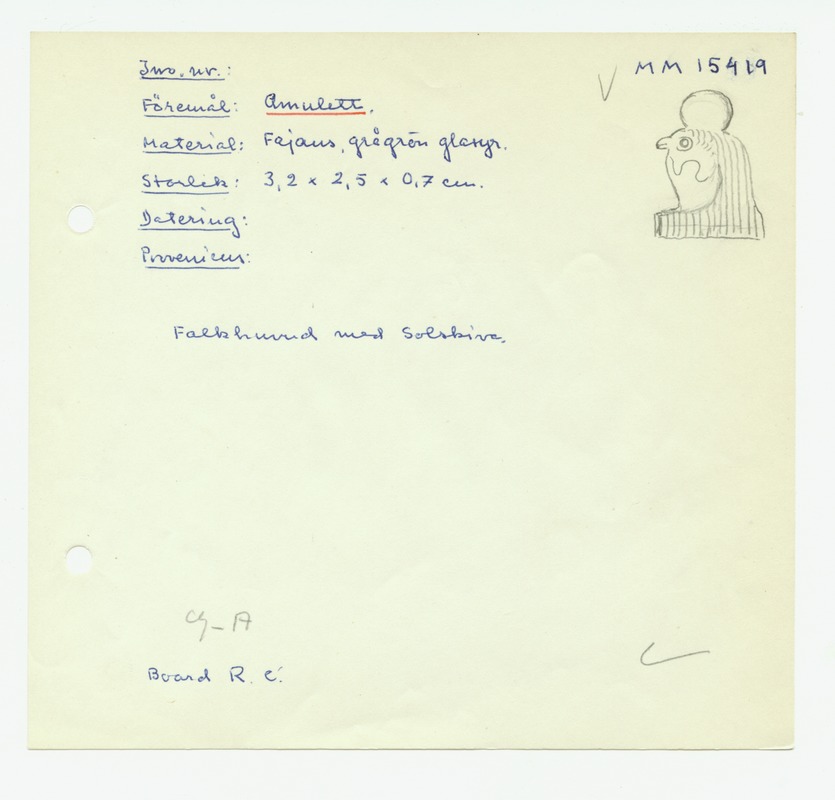 Inv. nr.: MM 15419
Föremål: Amulett.
Material: Fajans, grågrön glasyr.
Storlek: 3,2 x 2,5 x 0,7 cm.
Datering:
Proveniens:
Falkhuvud med Solskiva.
Board R. C.